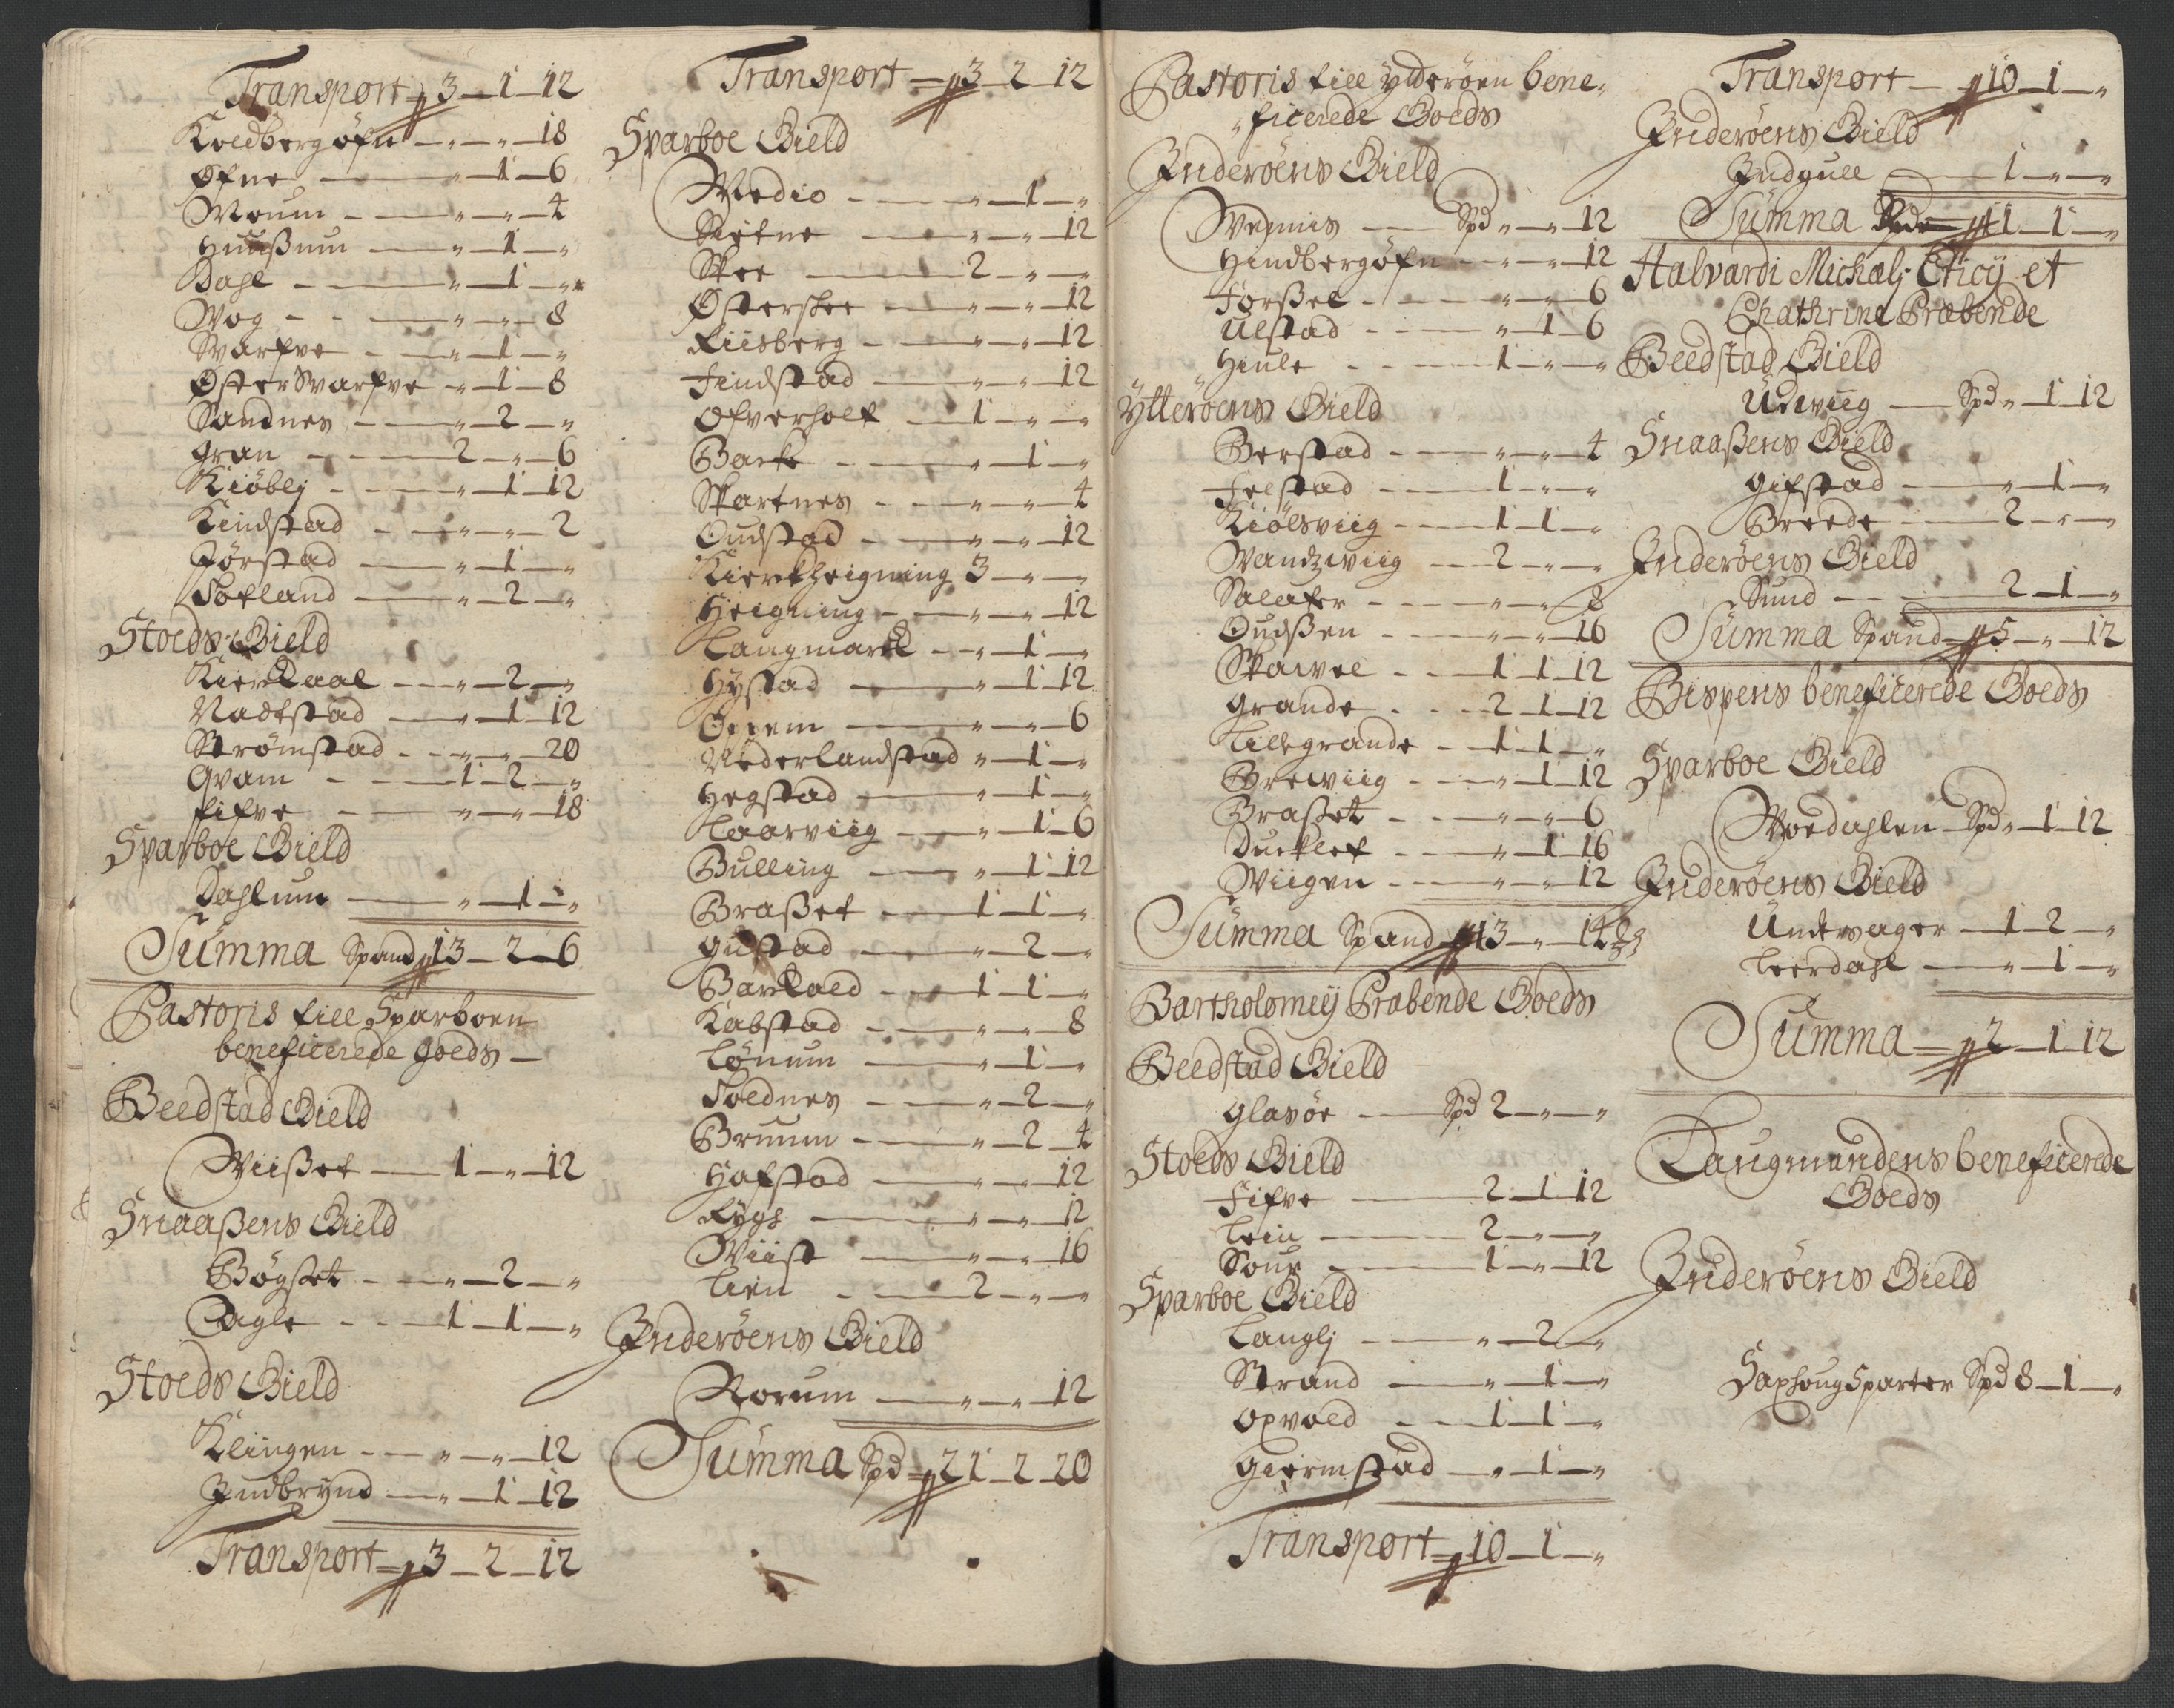 Transport — 3 — 1 — 12
Koldbergöfn — „ — „ — 18
Øfne — „ — 1 — 6
Moum — „ — „ — 4
Huußum — „ — 1 — „
Dahl — „ — 1 — „
Wog — „ — „ — 8
Swarfve — „ — 1 — „
Øster Swarfve „ — 1 — 8
Sandnes — „ — 2 — „
Gran — 2 — „ — 6
Kiöblj — „ — 1 — 12
Kindstad — „ — „ — 2
Förstad — „ — 1 — „
Sofland — „ — 2 — „
Stoeds Gield
Kirkaal — „ — 2 — „
Nadtstad — „ — 1 — 12
Strömstad — „ — „ — 20
Qvam — 1 — 2 — „
Fifve — „ — „ — 18
Sparboe Gield
Dahlum — „ — 1 — „
Summa Spand 13 — 2 — 6
Pastoris till Sparboen
beneficerede goeds —
Beedstad Gield
Wiißet — 1 — „ — 12
Snaaßens Gield
Bögset — „ — 2 — „
Agle — 1 — 1 — „
Stoeds Gield
Klingen — „ — „ — 12
Indbrynd — „ — 1 — 12
Transport — 3 — 2 — 12
Transport — 3 — 2 — 12
Sparboe Gield
Medio — „ — 1 — „
Sietne — „ — „ — 12
Skee — 2 — „ — „
Østerskee — „ — „ — 12
Riisberg — „ — „ — 12
Findstad — „ — „ — 12
Ofverholt — 1 — „ — „
Barke — „ — 1 — „
Skartnes — „ — „ — 4
Oudstad — „ — „ — 12
Kierkheigning 3 — „ — „
Heigning — „ — „ — 12
Langmarck — „ — 1 — „
Hÿstad — „ — 1 — 12
Oppem — „ — „ — 6
Nederlandstad „ — 1 — „
Hegstad — „ — 1 — „
Laarviig — „ — 1 — 6
Bulling — „ — 1 — 12
Braßet — 1 — 1 — „
Gustad — „ — 2 — „
Barkald — 1 — 1 — „
Kabstad — „ — „ — 8
Lönum — „ — 1 — „
Foldnes — „ — 2 — „
Bruum — „ — 2 — 4
Hafstad — „ — „ — 12
Rygh — „ — „ — 12
Wiist — „ — „ — 16
Lien — 2 — „ — „
Inderöens Gield
Rorum — „ — „ — 12
Summa Spd 21 — 2 — 20
Pastoris till Ytterøen bene-
ficerede Goeds
Inderöens Gield
Wennis — Spd „ — „ — 12
Hindbergöfn — „ — „ — 12
Forßet — „ — „ — 6
Ulstad — „ — 1 — 6
Hiule — 1 — „ — „
Ÿtteröens Gield
Berstad — „ — „ — 4
Felstad — 1 — „ — „
Kiölsviig — 1 — 1 — „
Wandzwiig — 2 — „ — „
Salater — „ — „ — 8
Oudßen — „ — „ — 16
Skawel — 1 — 1 — 12
Grande — 2 — 1 — 12
Lillegrande — 1 — 1 — „
Brewiig — „ — 1 — 12
Braßet — „ — „ — 6
Dueklet — „ — 1 — 16
Wiigen — „ — „ — 12
Summa Spand 13 — „ — 14
Bartholomeÿ Præbende Goeds
Beedstad Gield
Glasöe — Spd 2 — „ — „
Stoeds Gield
Fifve — 2 — 1 — 12
Lein — 2 — „ — „
Four — 1 — „ — 12
Sparboe Gield
Langlj — „ — 2 — „
Strand — „ — 1 — „
Opvold — 1 — 1 — „
Giermstad — „ — 1 — „
Transport 10 — 1 — „
Transport — 10 — 1 — „
Inderöens Gield
Indgull — 1 — „ — „
Summa 11 — 1 — „
Halvardi Michælj Ericÿ et
Chathrinæ Præbende
Beedstad Gield
Udwiig — Spd „ 1 — 12
Snaaßens Gield
Gifstad — „ — 1 — „
Breede — 2 — „ — „
Inderöens Gield
Sund — 2 — 1 — „
Summa Spand 5 — „ — 12
Bispens beneficerede Goeds
Sparboe Gield
Woedahlen Spd „ 1 — 12
Inderöens Gield
Undervager — 1 — 2 — „
Leerdahl — „ — 1 — „
Summa — 2 — 1 — 12
Laugmandens beneficerede
Goeds
Inderöens Gield
Saxhoug Sparter Spd 8 — 1 — „